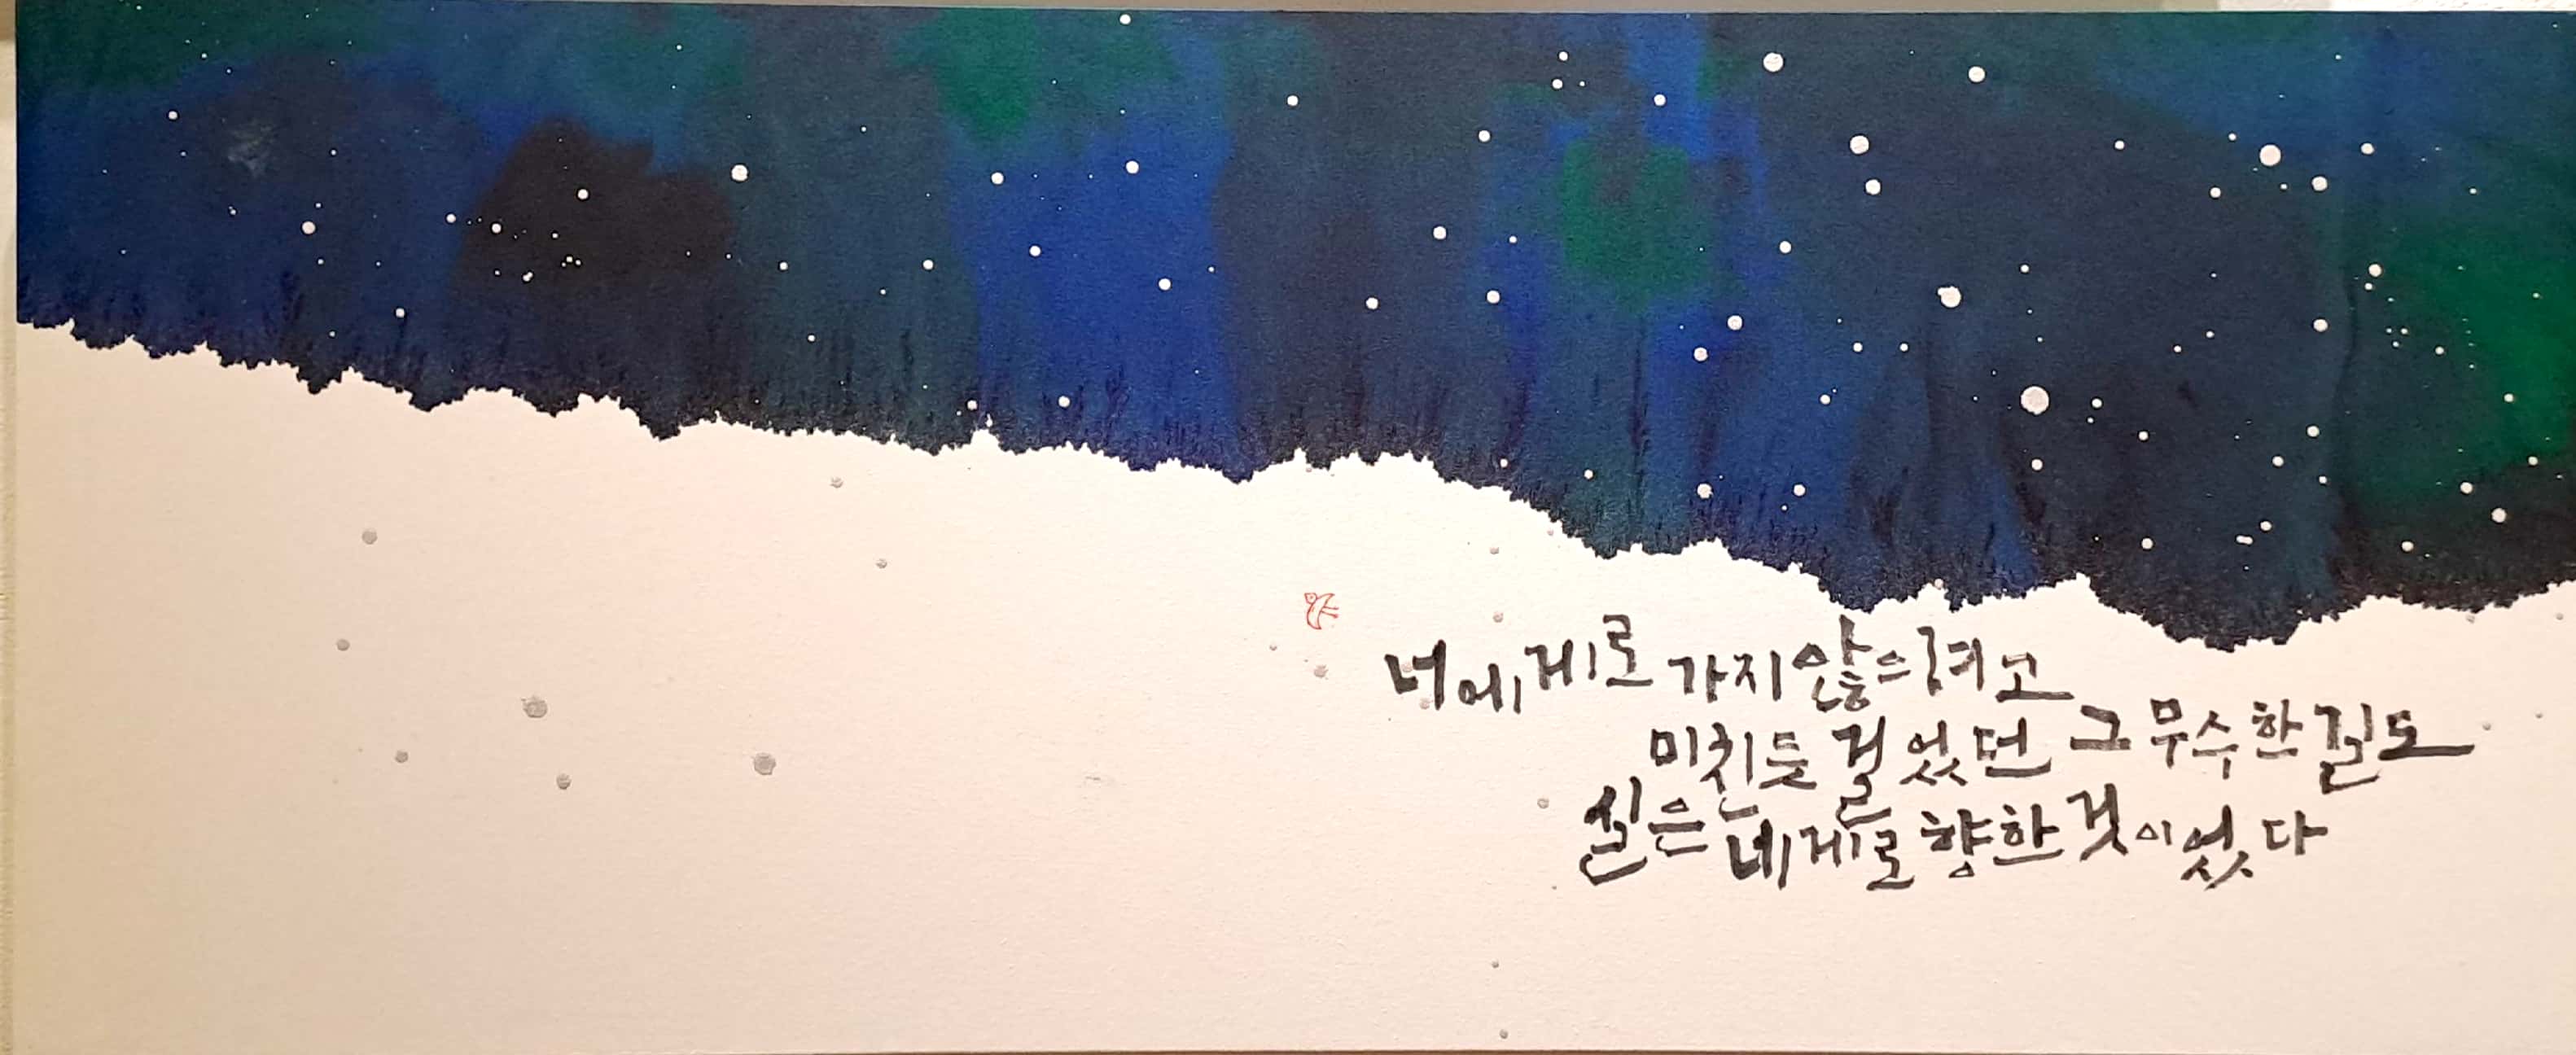 너에게로 가지 않으려고
미친듯 걸었던 그 무수한 길도
실은 네게로 향한 것이었다